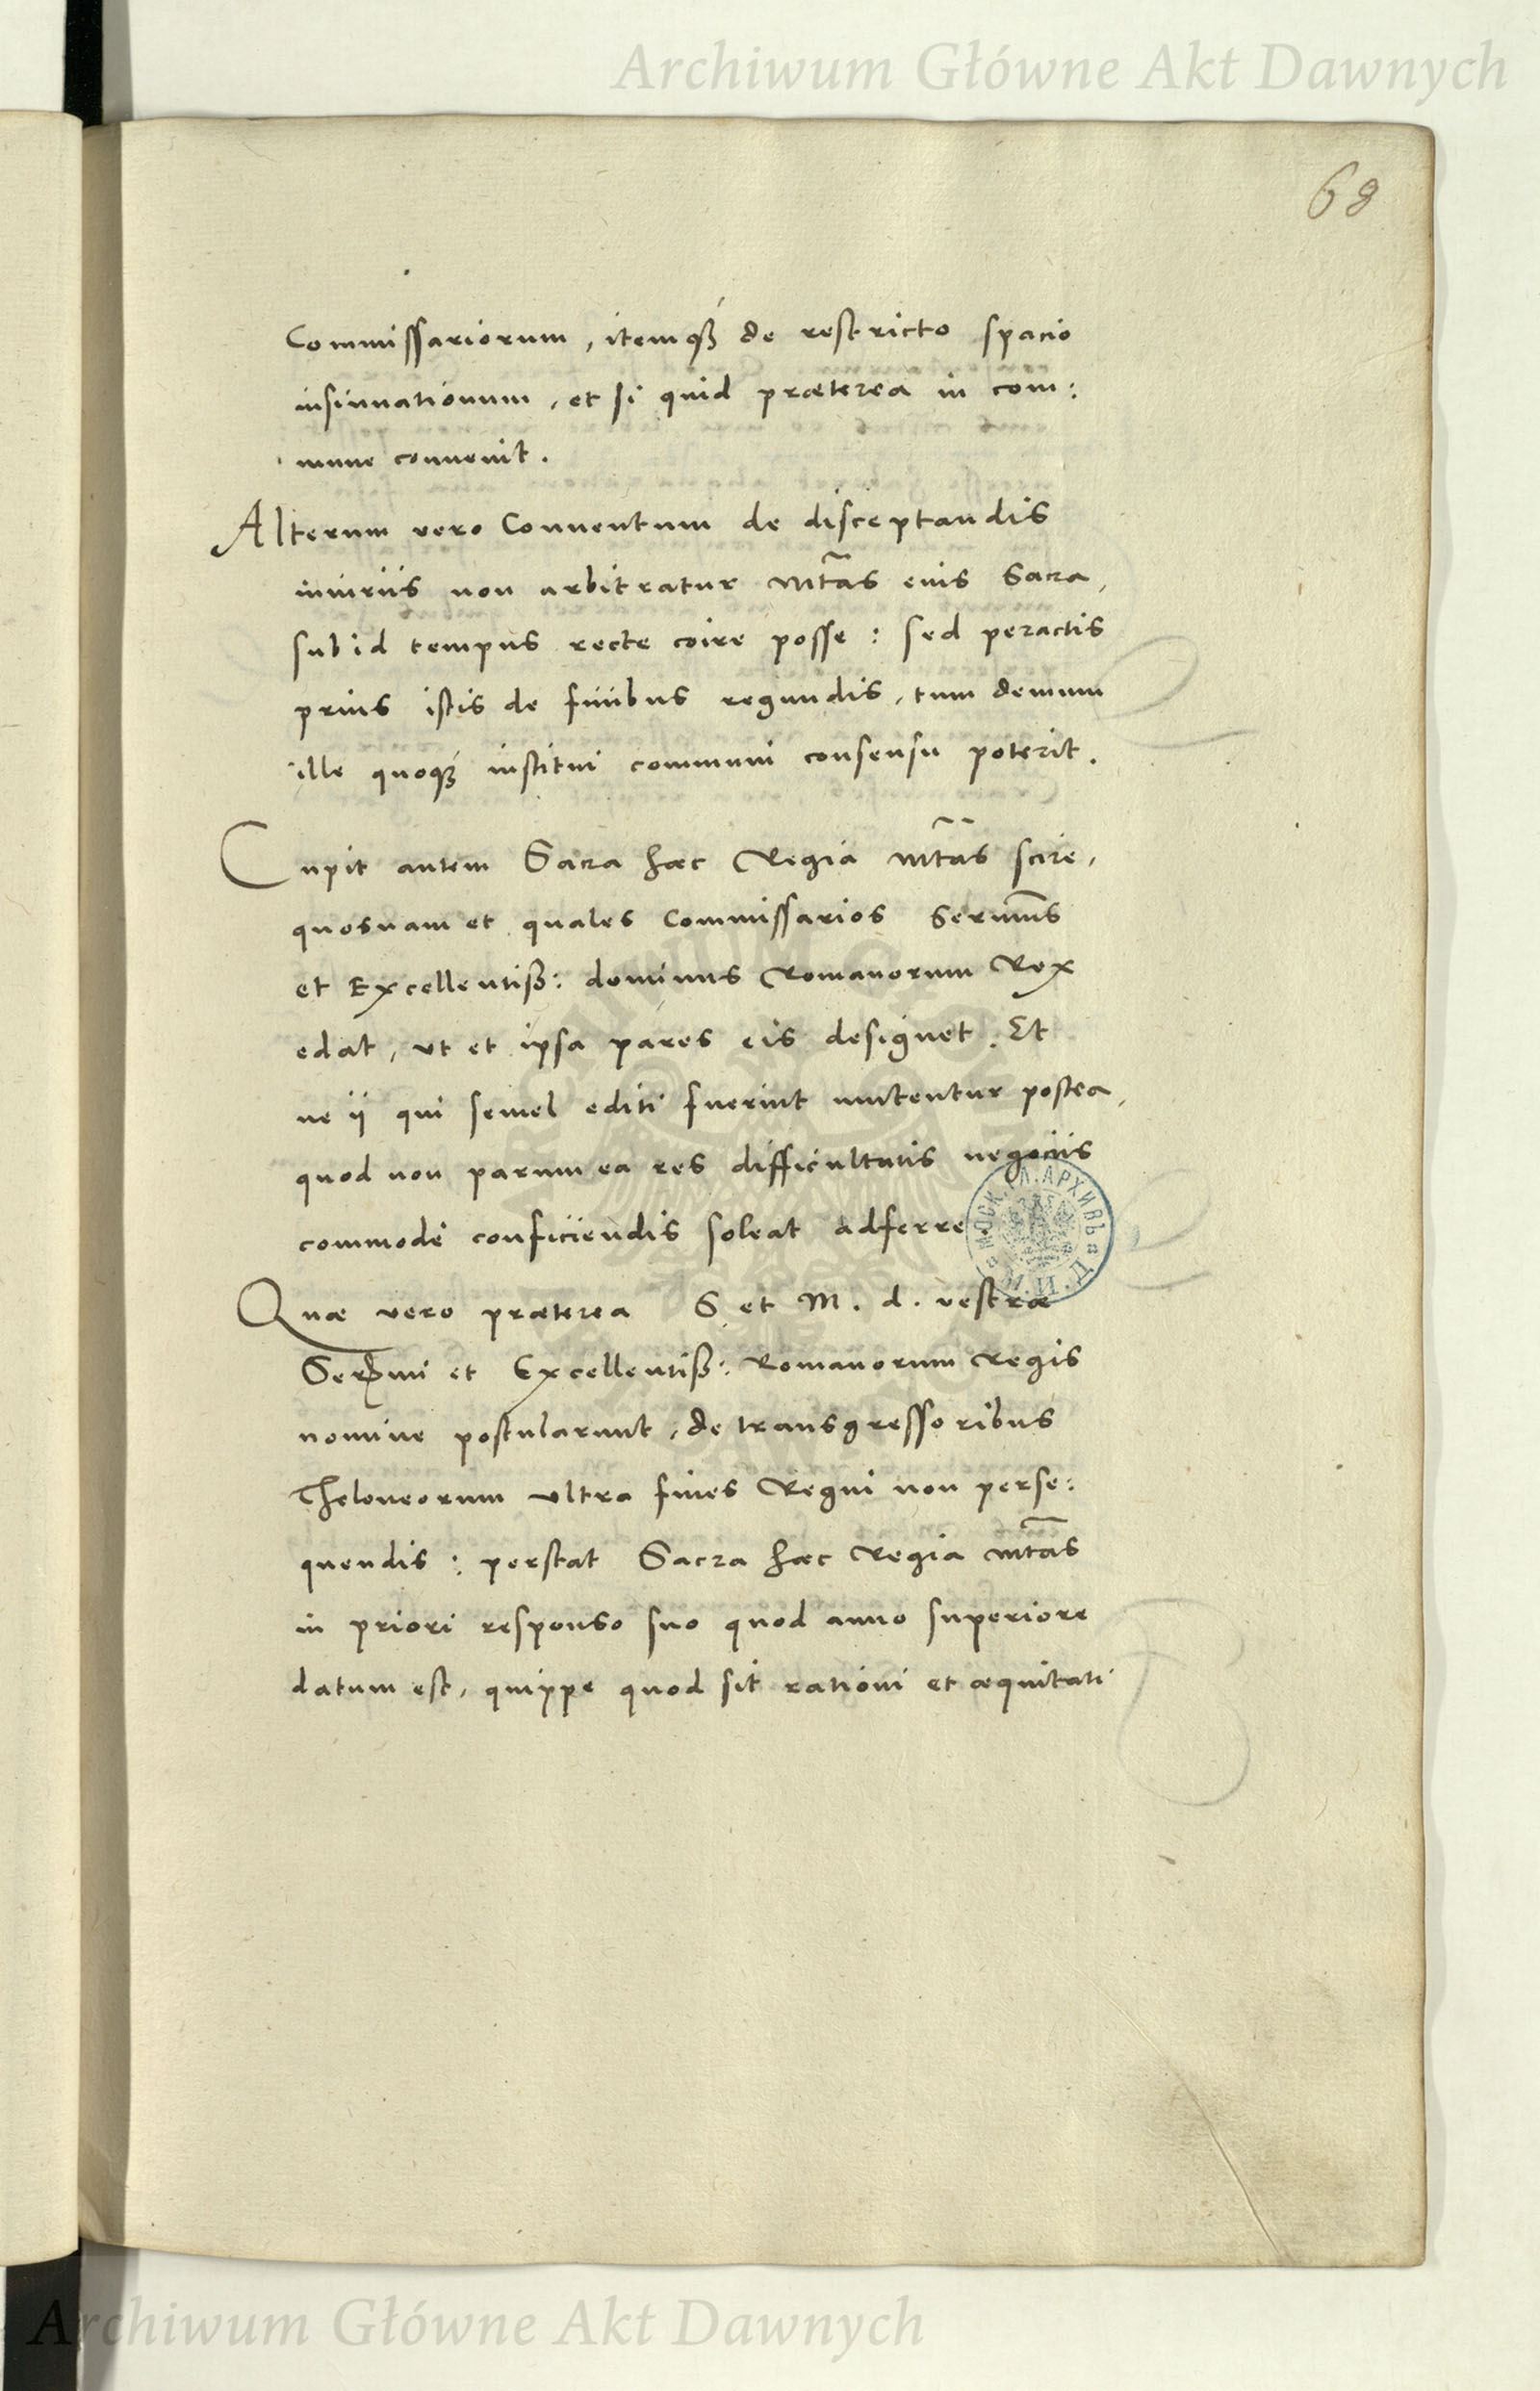 Archiwum Główne Akt Dawnych
68
Commissariorum, itemqꝫ de restricto spacio
insinuationum, et si quid præterea in com:
mune convenit.
Alterum vero Conventum de disceptandis
iniuriis non arbitratur Mtas eius Sacra,
sub id tempus recte coire posse: sed peractis
prius istis de finibus regundis, tum demum
ille quoqꝫ institui communi consensu poterit.
Cupit autem Sacra hæc Regia Mtas scire,
quosnam et quales Commissarios Sermus
et Excellentiss: dominus Romanorum Rex
edat, ut et ipsa pares eis designet. Et
ne ij qui semel editi fuerint mutentur postea,
quod non parum ea res difficultatis negociis
commode conficiendis soleat adferre.
Quæ vero præterea S. et M. d. vestræ
Sermi et Excellentiss: Romanorum Regis
nomine postularunt, de transgressoribus
Theloneorum ultra fines Regni non perse:
quendis: perstat Sacra hæc Regia Mtas
in priori responso suo quod anno superiore
datum est, quippe quod sit rationi et æquitati
Archiwum Główne Akt Dawnych